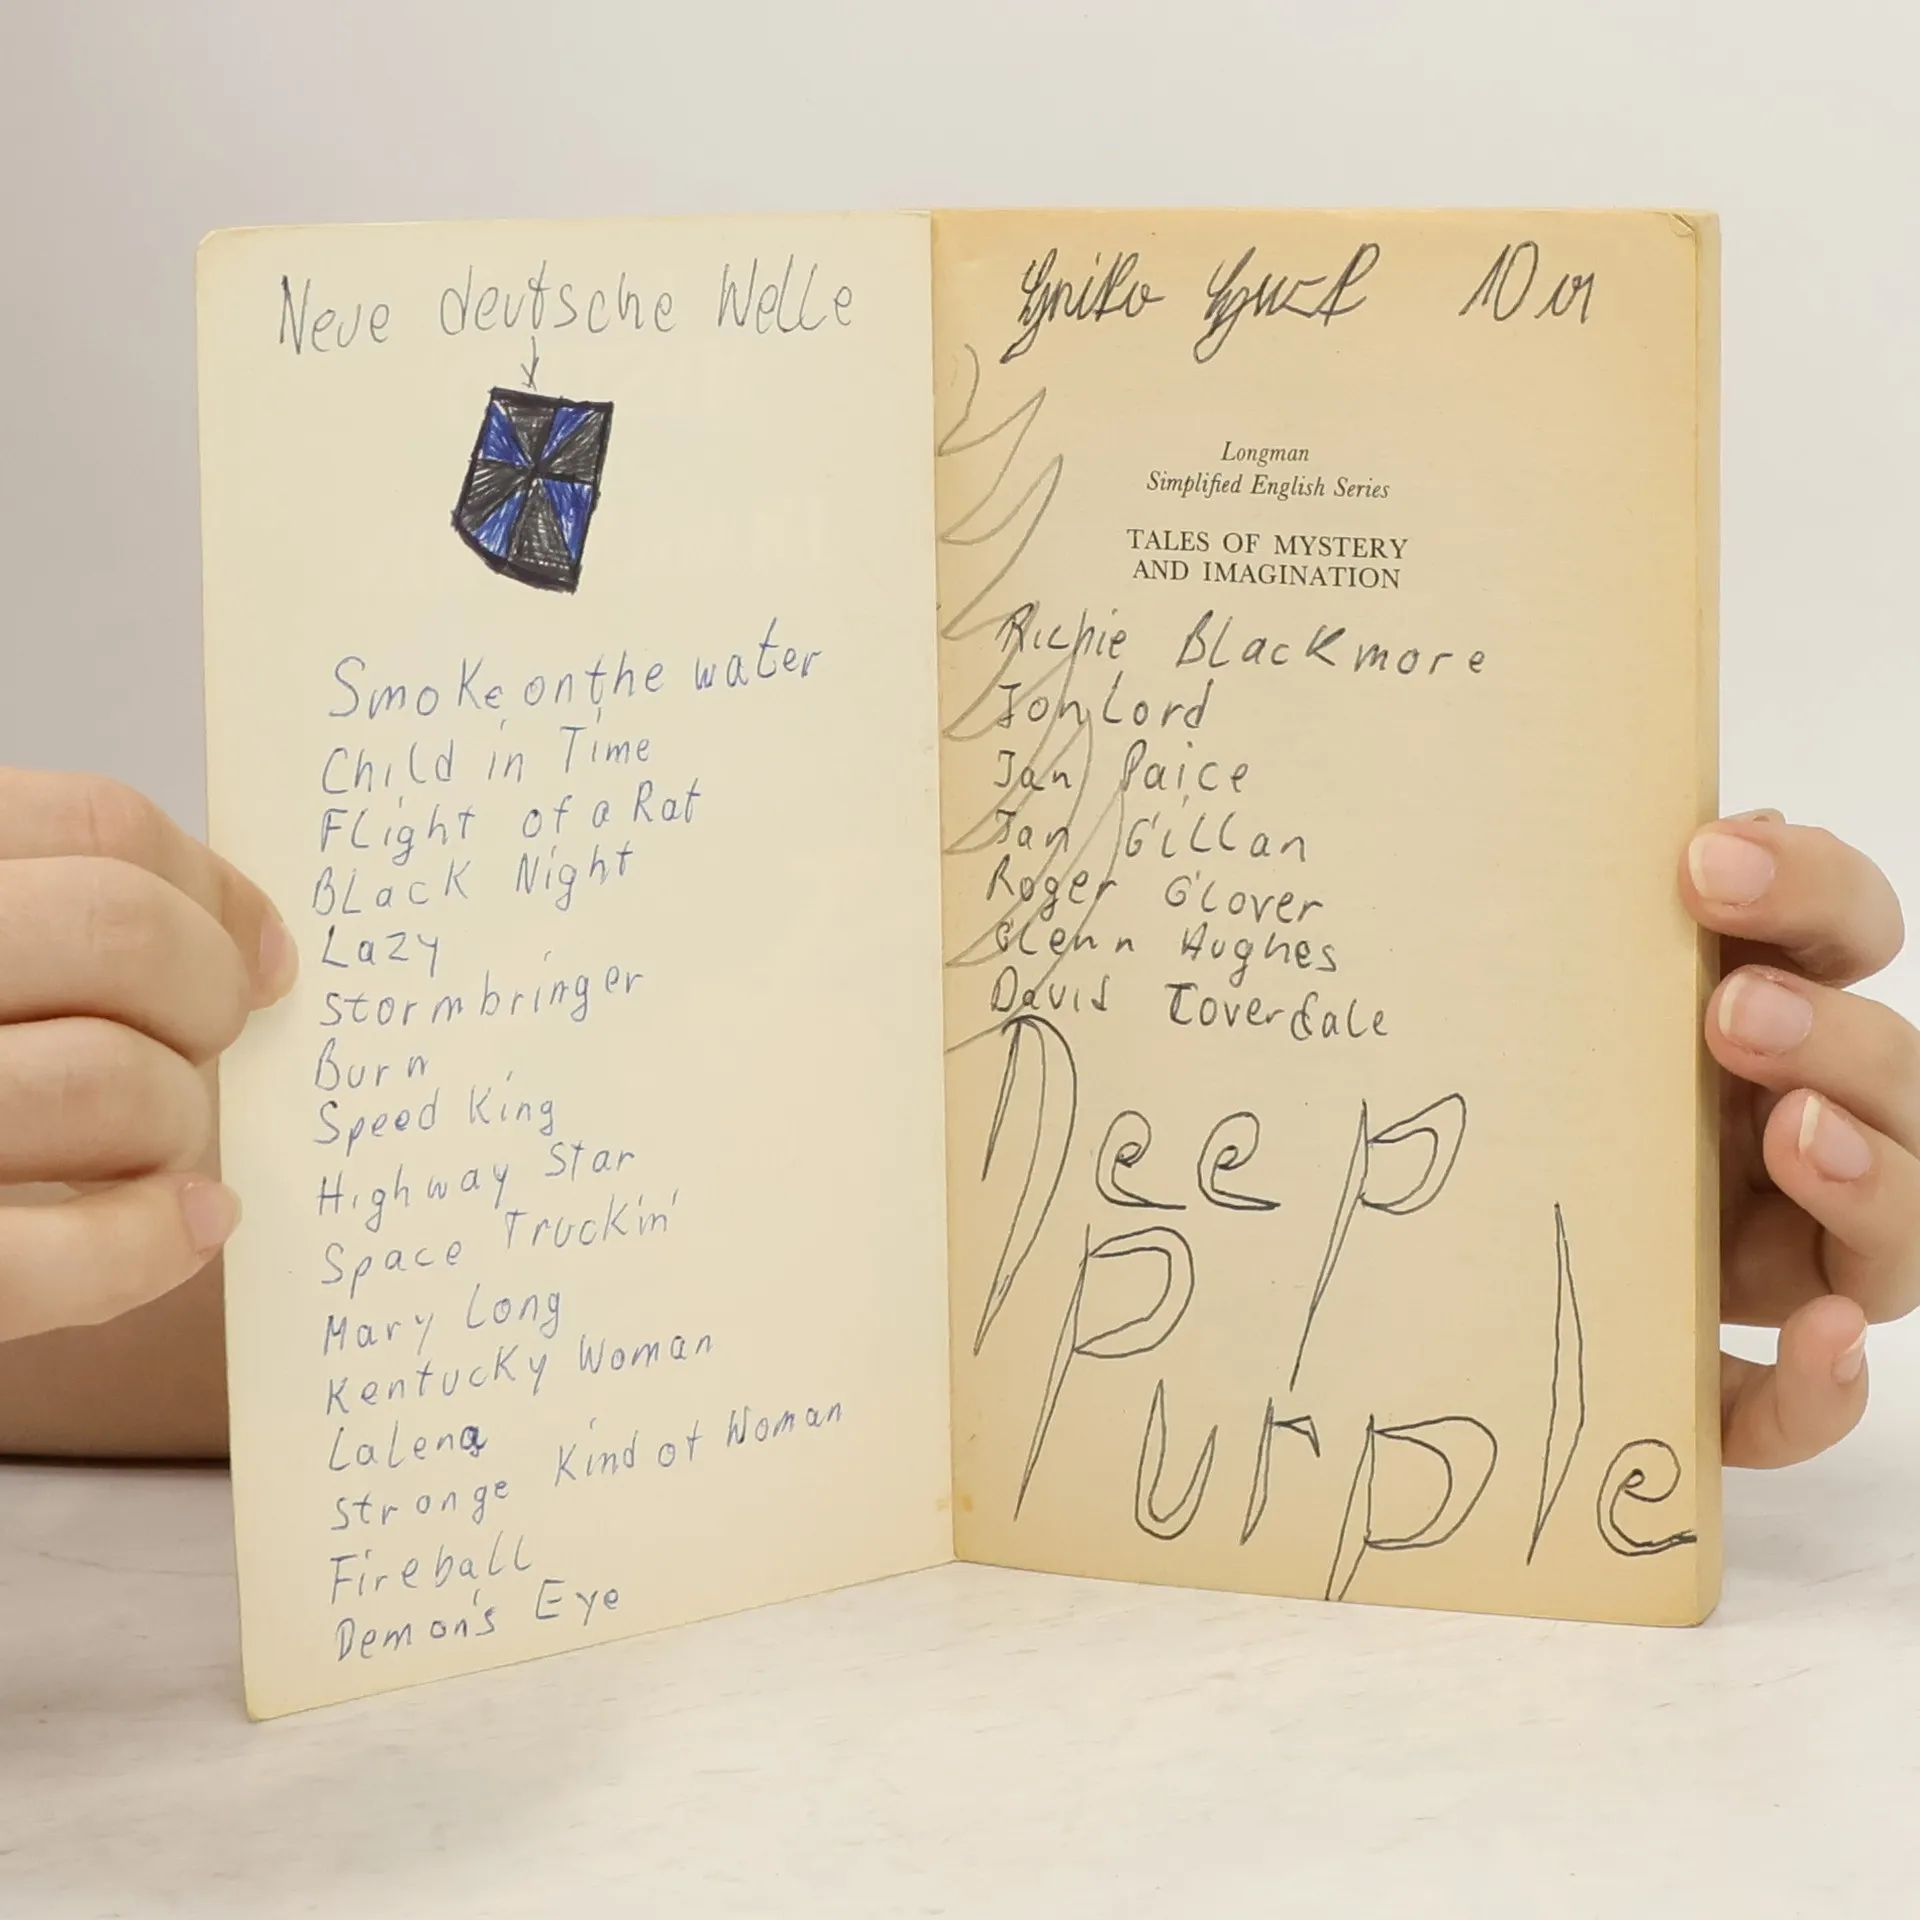 Neue deutsche Welle
Smoke on the water
Child in Time
Flight of a Rat
Black Night
Lazy
Stormbringer
Burn
Speed King
Highway Star
Space Truckin'
Mary Long
Kentucky Woman
Lalena
Strange Kind of Woman
Fireball
Demon's Eye
10
Longman
Simplified English Series
TALES OF MYSTERY
AND IMAGINATION
Richie Blackmore
Jon Lord
Jan Paice
Jan Gillan
Roger Glover
Glenn Hughes
David Coverdale
Deep
Purple